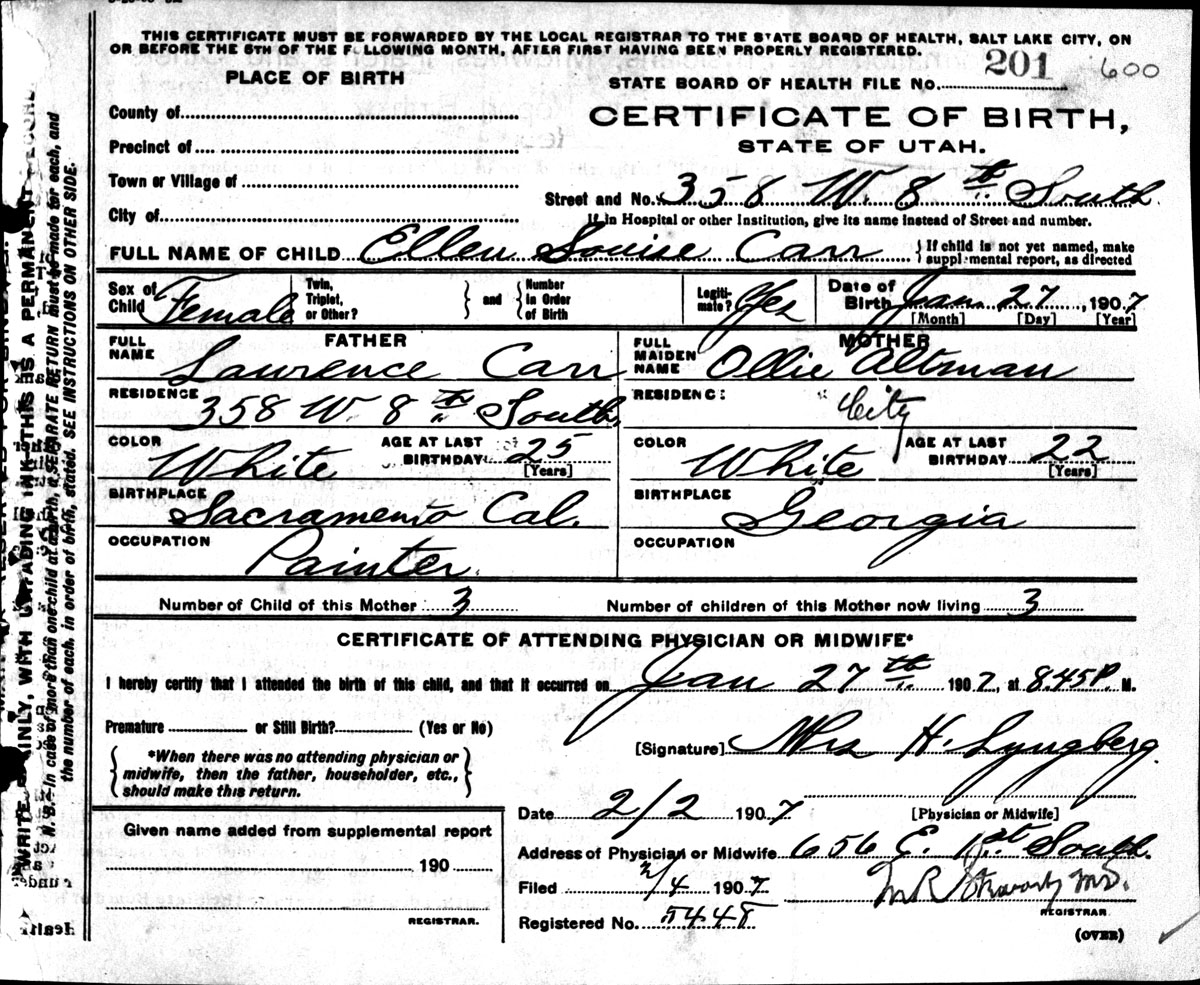 THIS CERTIFICATE MUST BE FORWARDED BY THE LOCAL REGISTRAR TO THE STATE BOARD OF HEALTH, SALT LAKE CITY, ON
OR BEFORE THE 5TH OF THE F LLOWING MONTH, AFTER FIRST HAVING BEEN PROPERLY REGISTERED.
PLACE OF BIRTH
STATE BOARD OF HEALTH FILE NO. 201 600
County of
CERTIFICATE OF BIRTH,
Precinct of
STATE OF UTAH.
Town or Village of
Street and No. 358 W. 8th South
City of
If in Hospital or other Institution, give its name instead of Street and number.
FULL NAME OF CHILD Ellen Louise Carr { If child is not yet named, make
supplemental report, as directed
Sex of Child Female Twin, Triplet, or Other? } and { Number in Order of Birth Legiti-mate? Yes Date of Birth Jan 27, 1907
[Month] [Day] [Year]
FATHER MOTHER
FULL NAME Lawrence Carr FULL MAIDEN NAME Ollie Altman
RESIDENCE 358 W 8th South RESIDENC: City
COLOR White AGE AT LAST BIRTHDAY 25 [Years] COLOR White AGE AT LAST BIRTHDAY 22 [Years]
BIRTHPLACE Sacramento Cal. BIRTHPLACE Georgia
OCCUPATION Painter. OCCUPATION
Number of Child of this Mother 3 Number of children of this Mother now living 3
CERTIFICATE OF ATTENDING PHYSICIAN OR MIDWIFE*
I hereby certify that I attended the birth of this child, and that it occurred on Jan 27th 1907, at 8.45 P. M.
Premature or Still Birth? (Yes or No)
[Signature] Mrs H. Lyngberg.
*When there was no attending physician or
midwife, then the father, householder, etc.,
should make this return.
Date 2/2 1907 [Physician or Midwife]
Given name added from supplemental report
Address of Physician or Midwife 656 E. 1st South.
190
Filed 2/4 1907
M.D.
REGISTRAR.
REGISTRAR
Registered No. 5448
(OVER)
WRITE PLAINLY, WITH UNFADING INK—THIS IS A PERMANENT RECORD
N. B.—In case of more than one child at a birth, a SEPARATE RETURN must be made for each, and
the number of each, in order of birth, stated. SEE INSTRUCTIONS ON OTHER SIDE.